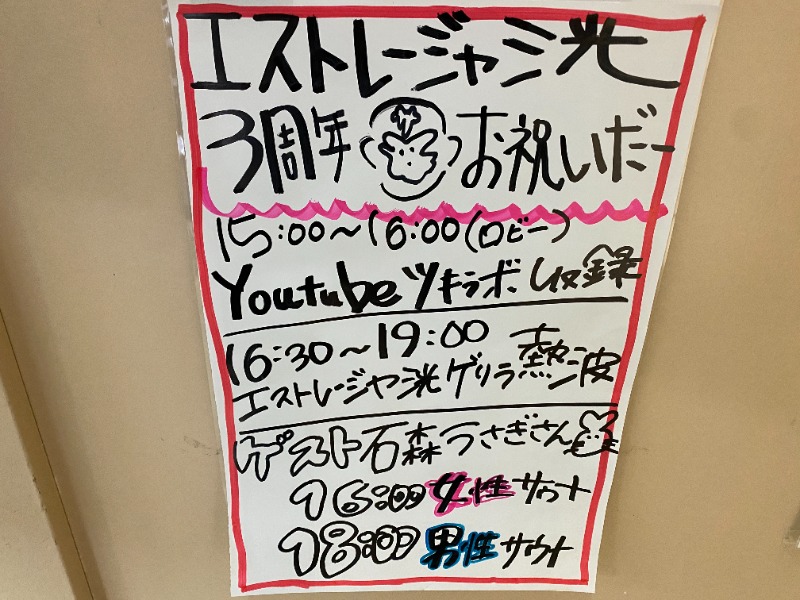 エストレージャ洸
3周年 サ お祝いだー
15:00~16:00(ロビー)
Youtubeツキラボ収録
16:30~19:00
エストレージャ洸ゲリラ熱波
ゲスト石森うさぎさん
16:00 女性サウナ
18:00 男性サウナ